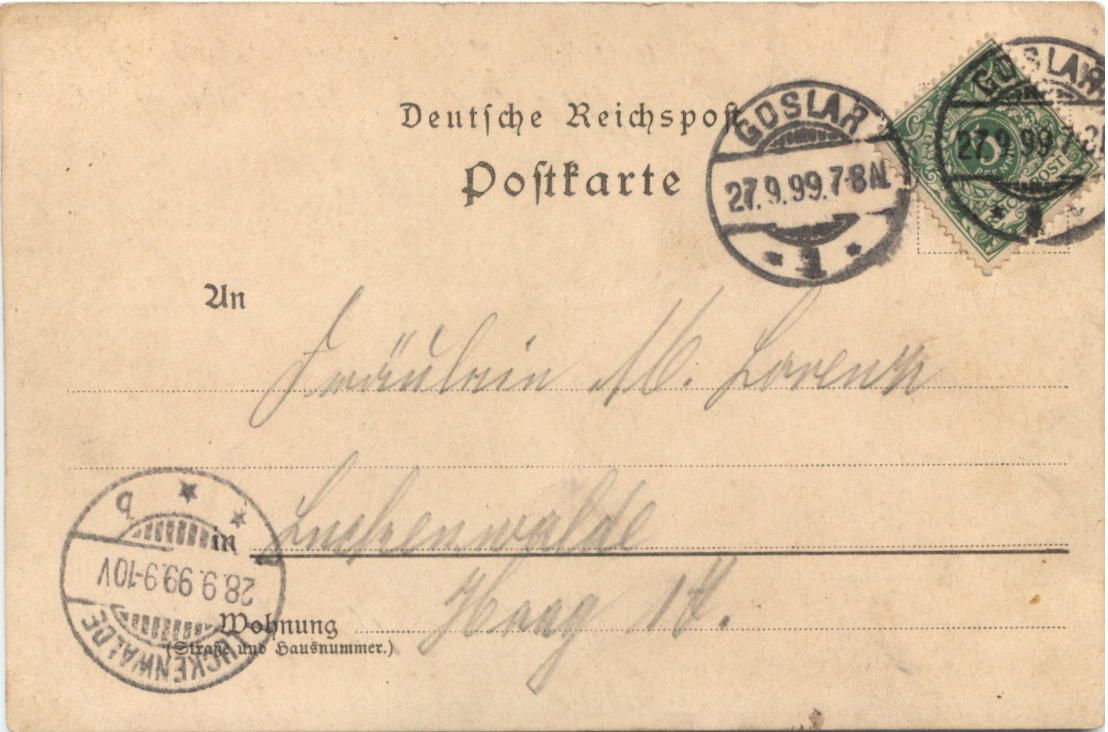 Deutsche Reichspost
Postkarte
GOSLAR
27.9.99.7-8N.
* 1 *
GOSLAR
27.9.99.7-8N
* 1 *
5
PFENNIG
REICHSPOST
An
Fräulein M. Lorenz
in Luckenwalde
Wohnung Haag
(Straße und Hausnummer.)
LUCKENWALDE
28.9.99.9-10V
* b *